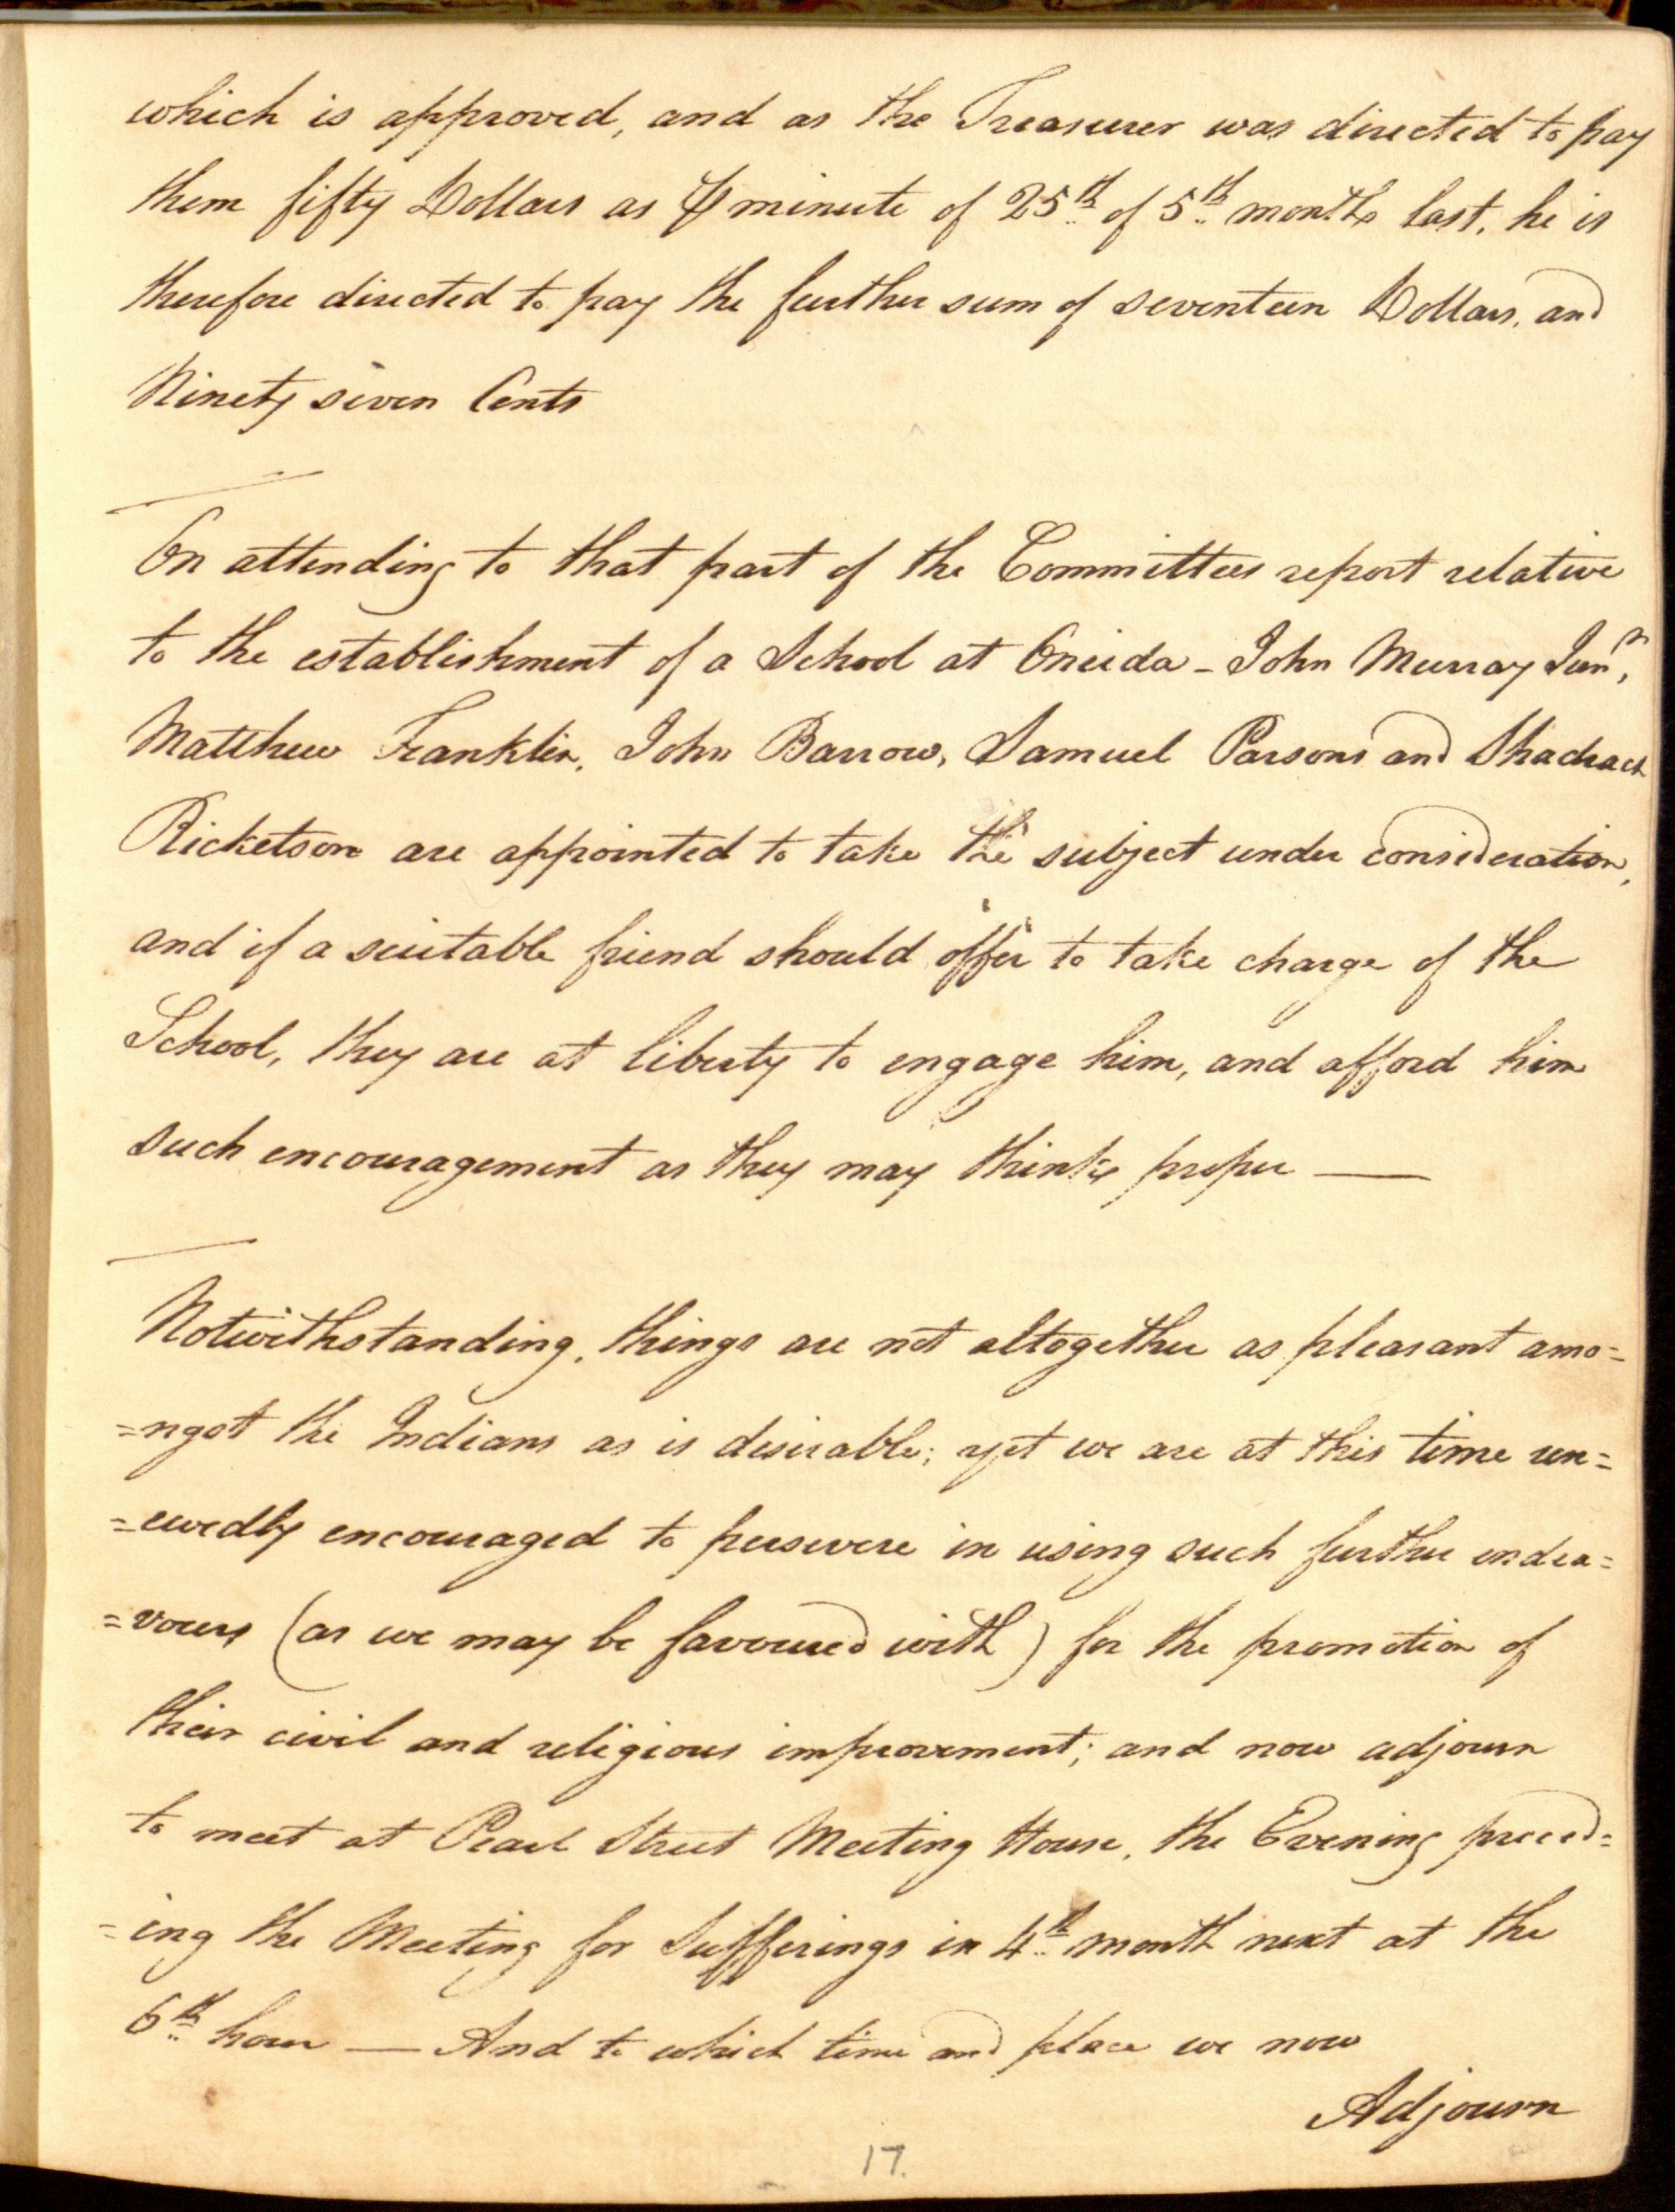 which is approved, and as the Treasurer was directed to pay
them fifty Dollars as ⅌ minute of 25th of 5th month last, he is
therefore directed to pay the further sum of seventeen Dollars, and
Ninety seven Cents
On attending to that part of the Committees report relative
to the establishment of a School at Oneida - John Murray Junr,
Matthew Franklin, John Barrow, Samuel Parsons and Shadrach
Ricketson are appointed to take the subject under consideration,
and if a suitable friend should offer to take charge of the
School, they are at liberty to engage him, and afford him
such encouragement as they may think proper —
Notwithstanding, things are not altogether as pleasant amo=
=ngst the Indians as is desirable; yet we are at this time ren=
=ewedly encouraged to persevere in using such further endea=
=vours (as we may be favoured with) for the promotion of
their civil and religious improvement; and now adjourn
to meet at Pearl Street Meeting House, the Evening preced=
=ing the Meeting for Sufferings in 4th month next at the
6th hour — And to which time and place we now
Adjourn
17.